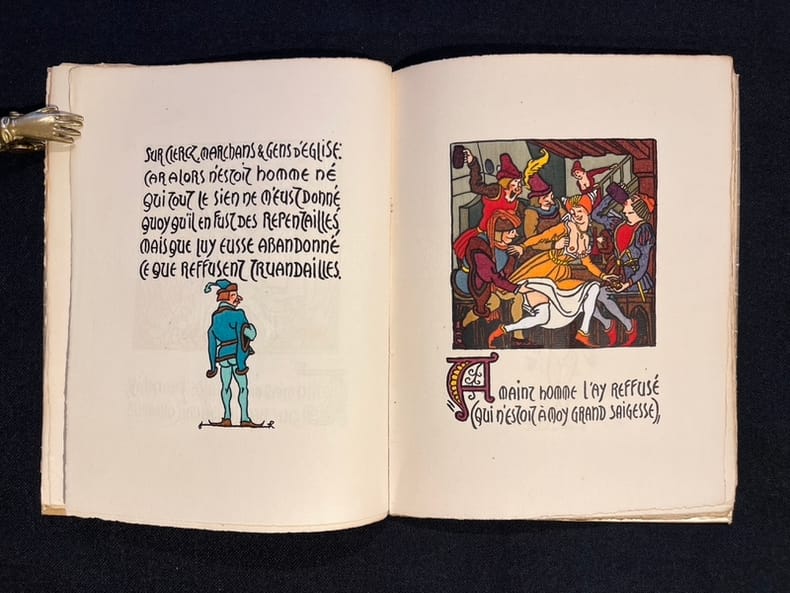 SUR CLERCZ, MARCHANS & GENS D'EGLISE:
CAR ALORS N'ESTOIT HOMME NÉ
QUI TOUT LE SIEN NE M'EUST DONNÉ
QUOY QU'IL EN FUST DES REPENTAILLES,
MAIS QUE LUY EUSSE ABANDONNÉ
CE QUE REFFUSENT TRUANDAILLES.
A MAINT HOMME L'AY REFFUSÉ
(QUI N'ESTOIT À MOY GRAND SAIGESSE),